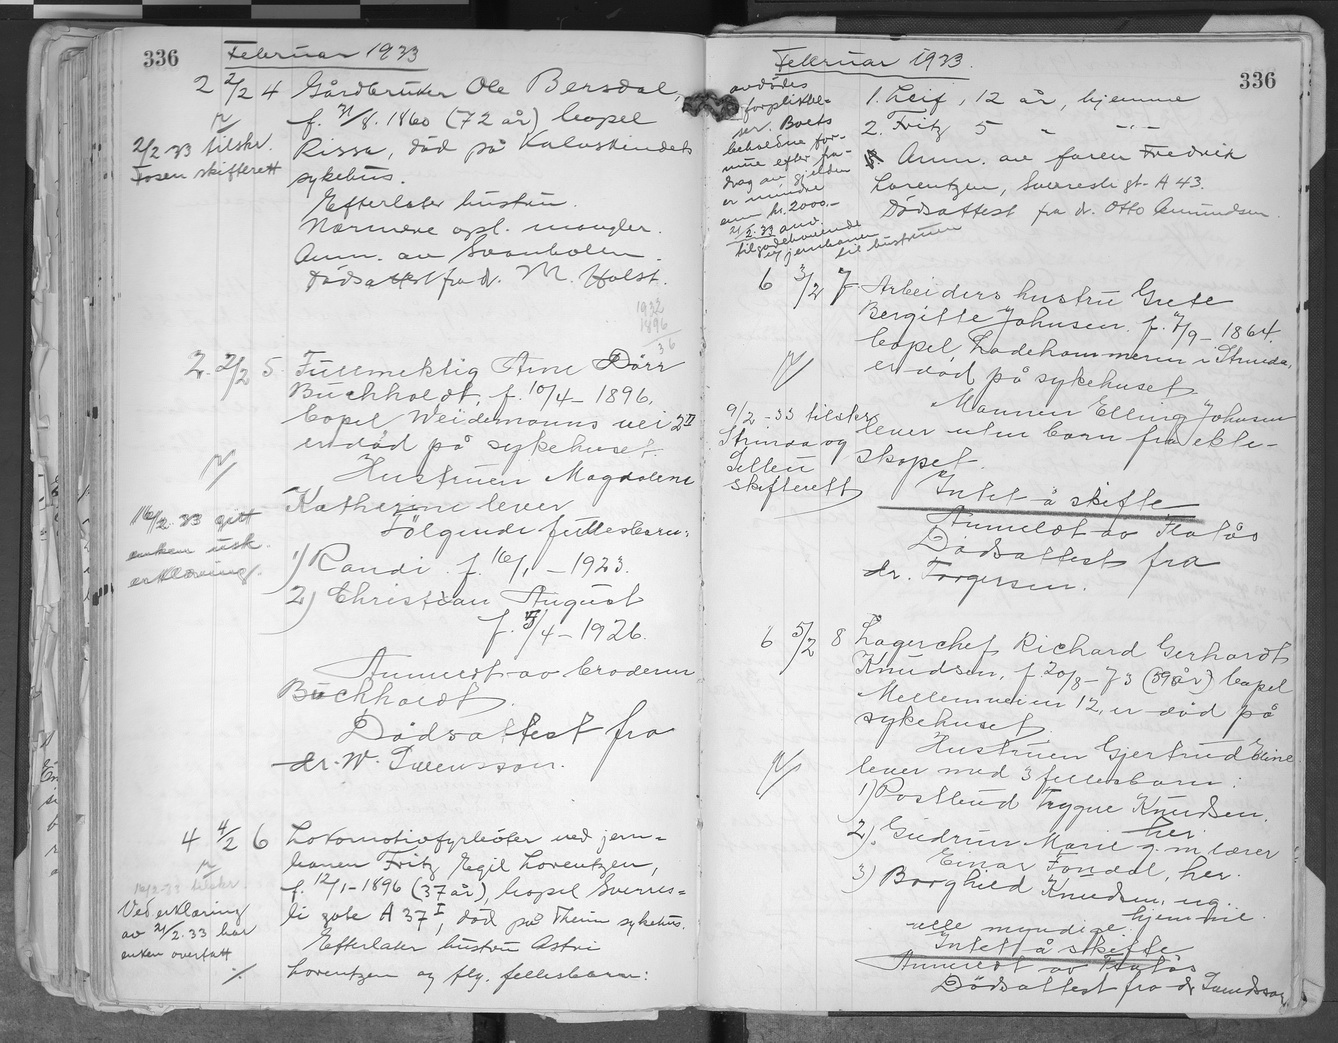 336
Februar 1933
2 2/2 4 Gårdbruker Ole Bersdal,
f. 21/8. 1860 (72 år) bopel
2/2-33 tilskr.
Fosen skifterett
Rissa, död på Kalvskindets
sykehus.
Efterlater hustru.
Nærmere opl. mangler.
Anm. av Svanholm.
Dödsattest fra dr. M. Holst.
1932
1896
36
2. 2/2 5 Fullmektig Arne Dörr
Buchholdt, f. 10/4 - 1896,
bopel Weidemanns vei 2 II
er död på sykehuset.
Hustruen Magdalene
Katherine lever
16/2.33 gitt
enken usk.
erklæring.
Fölgende fellesbarn:
1) Randi f. 16/1 - 1923.
2) Christian August
f. 5/4 - 1926.
Anmeldt av broderen
Buchholdt.
Dödsattest fra
dr. W.
4 4/2 6 Lokomotivfyrböter ved jern=
banen Fritz Egil Lorentzen,
f. 12/1 - 1896 (37 år), bopel Sverres=
li gate A 37 I, död på Thjem sykehus.
Efterlater hustru Astri
Lorentzen og flg. fellesbarn:
16/2-33 tilskr.
Ved erklæring
av 21/2.33 har
enken overtatt
%
Februar 1933.
336
avdödes
forpliktel-
ser. Boets
beholdne for-
mue efter fra-
drag av gjelden
er mindre
enn kr. 2000.-
21/2.33 anv.
tilgodehavende
ved jernbanen
til hustruen
1. Leif, 12 år, hjemme
2. Fritz 5 " -"-
Anm. av faren Fredrik
Lorentzen, Sverresli gt. A 43.
Dödsattest fra dr. Otto Amundsen.
6 3/2 7 Arbeiders hustru Grete
Bergitte Johnsen, f. 7/9 - 1864,
bopel Ladehammeren i Strinda,
er död på sykehuset.
Mannen Elling Johnsen
lever uten barn fra ekte-
skapet.
9/2-33 tilskr.
Strinda og
skifterett
Intet å skifte
Anmeldt av Flatås
Dödsattest fra
dr. Torgersen.
6 5/2 8 Lagerchef Richard Gerhardt
Knudsen, f. 20/8 - 73 (59 år) bopel
Mellemveien 12, er död på
sykehuset.
Hustruen Gjertrud Eline
lever med 3 fellesbarn:
1) Postbud Trygve Knudsen,
her.
2) Gudrun Marie g. m. lærer
Einar Fondal, her.
3) Borghild Knudsen, ug.
hjemme.
alle myndige.
Intet å skifte
Anmeldt av Flatås
Dödsattest fra dr.